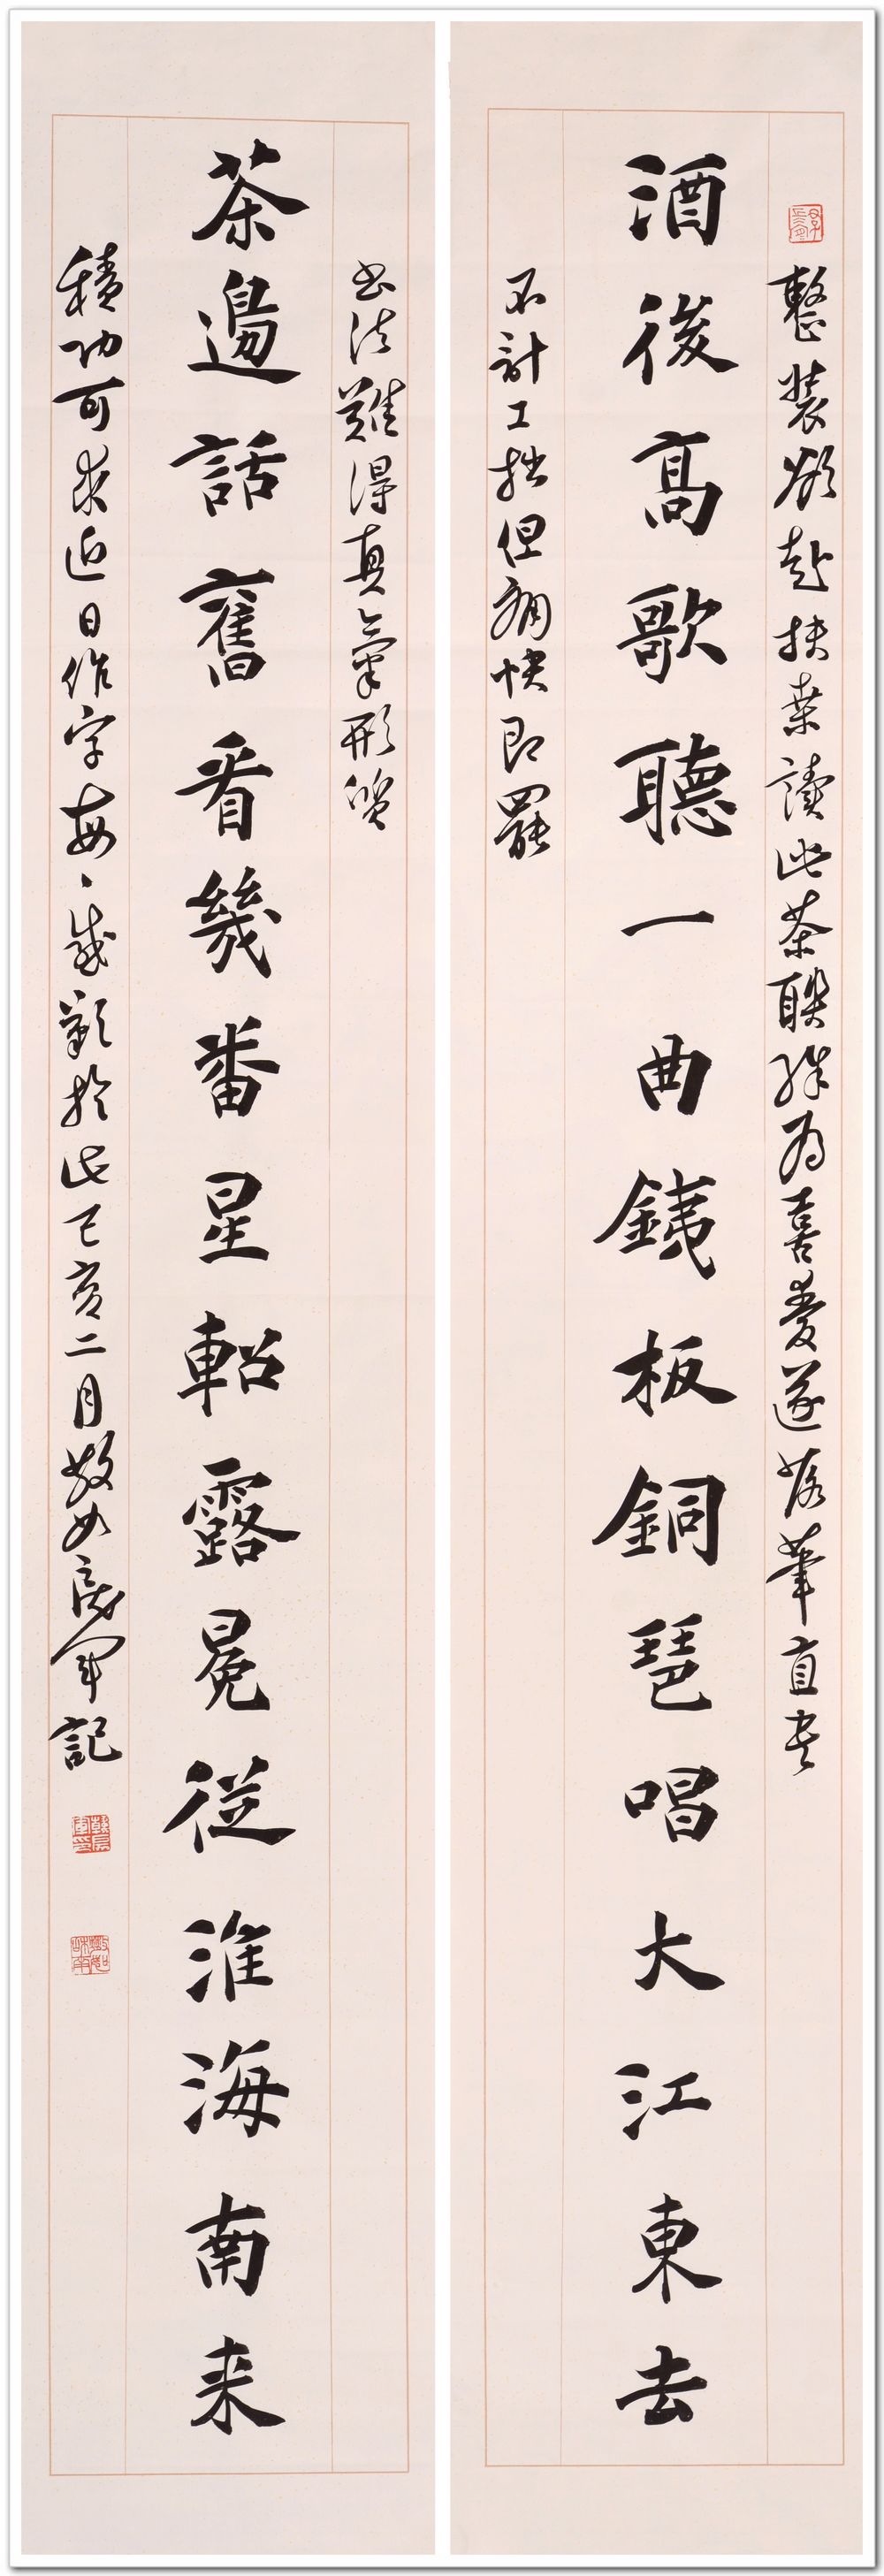 整裝欲赴扶桑讀此茶聯殊為喜愛遂落筆直書
酒後高歌聽一曲銕板銅琶唱大江東去
不計工拙但快即罷
書法難得真氣形質
茶邊話舊看幾番星軺露冕從淮海南来
積功可求近日作字每々感歎於此己亥二月敬如辰軍記